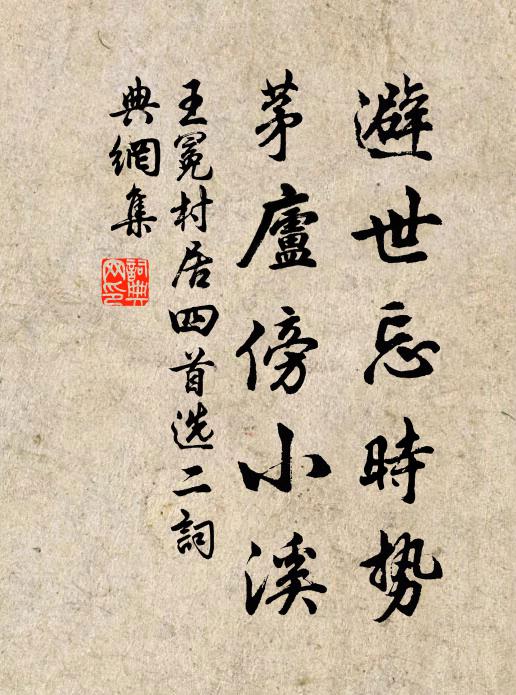 避世忘時势
茅廬傍小溪
王冕村居四首选二詞
典網集
詞典网印